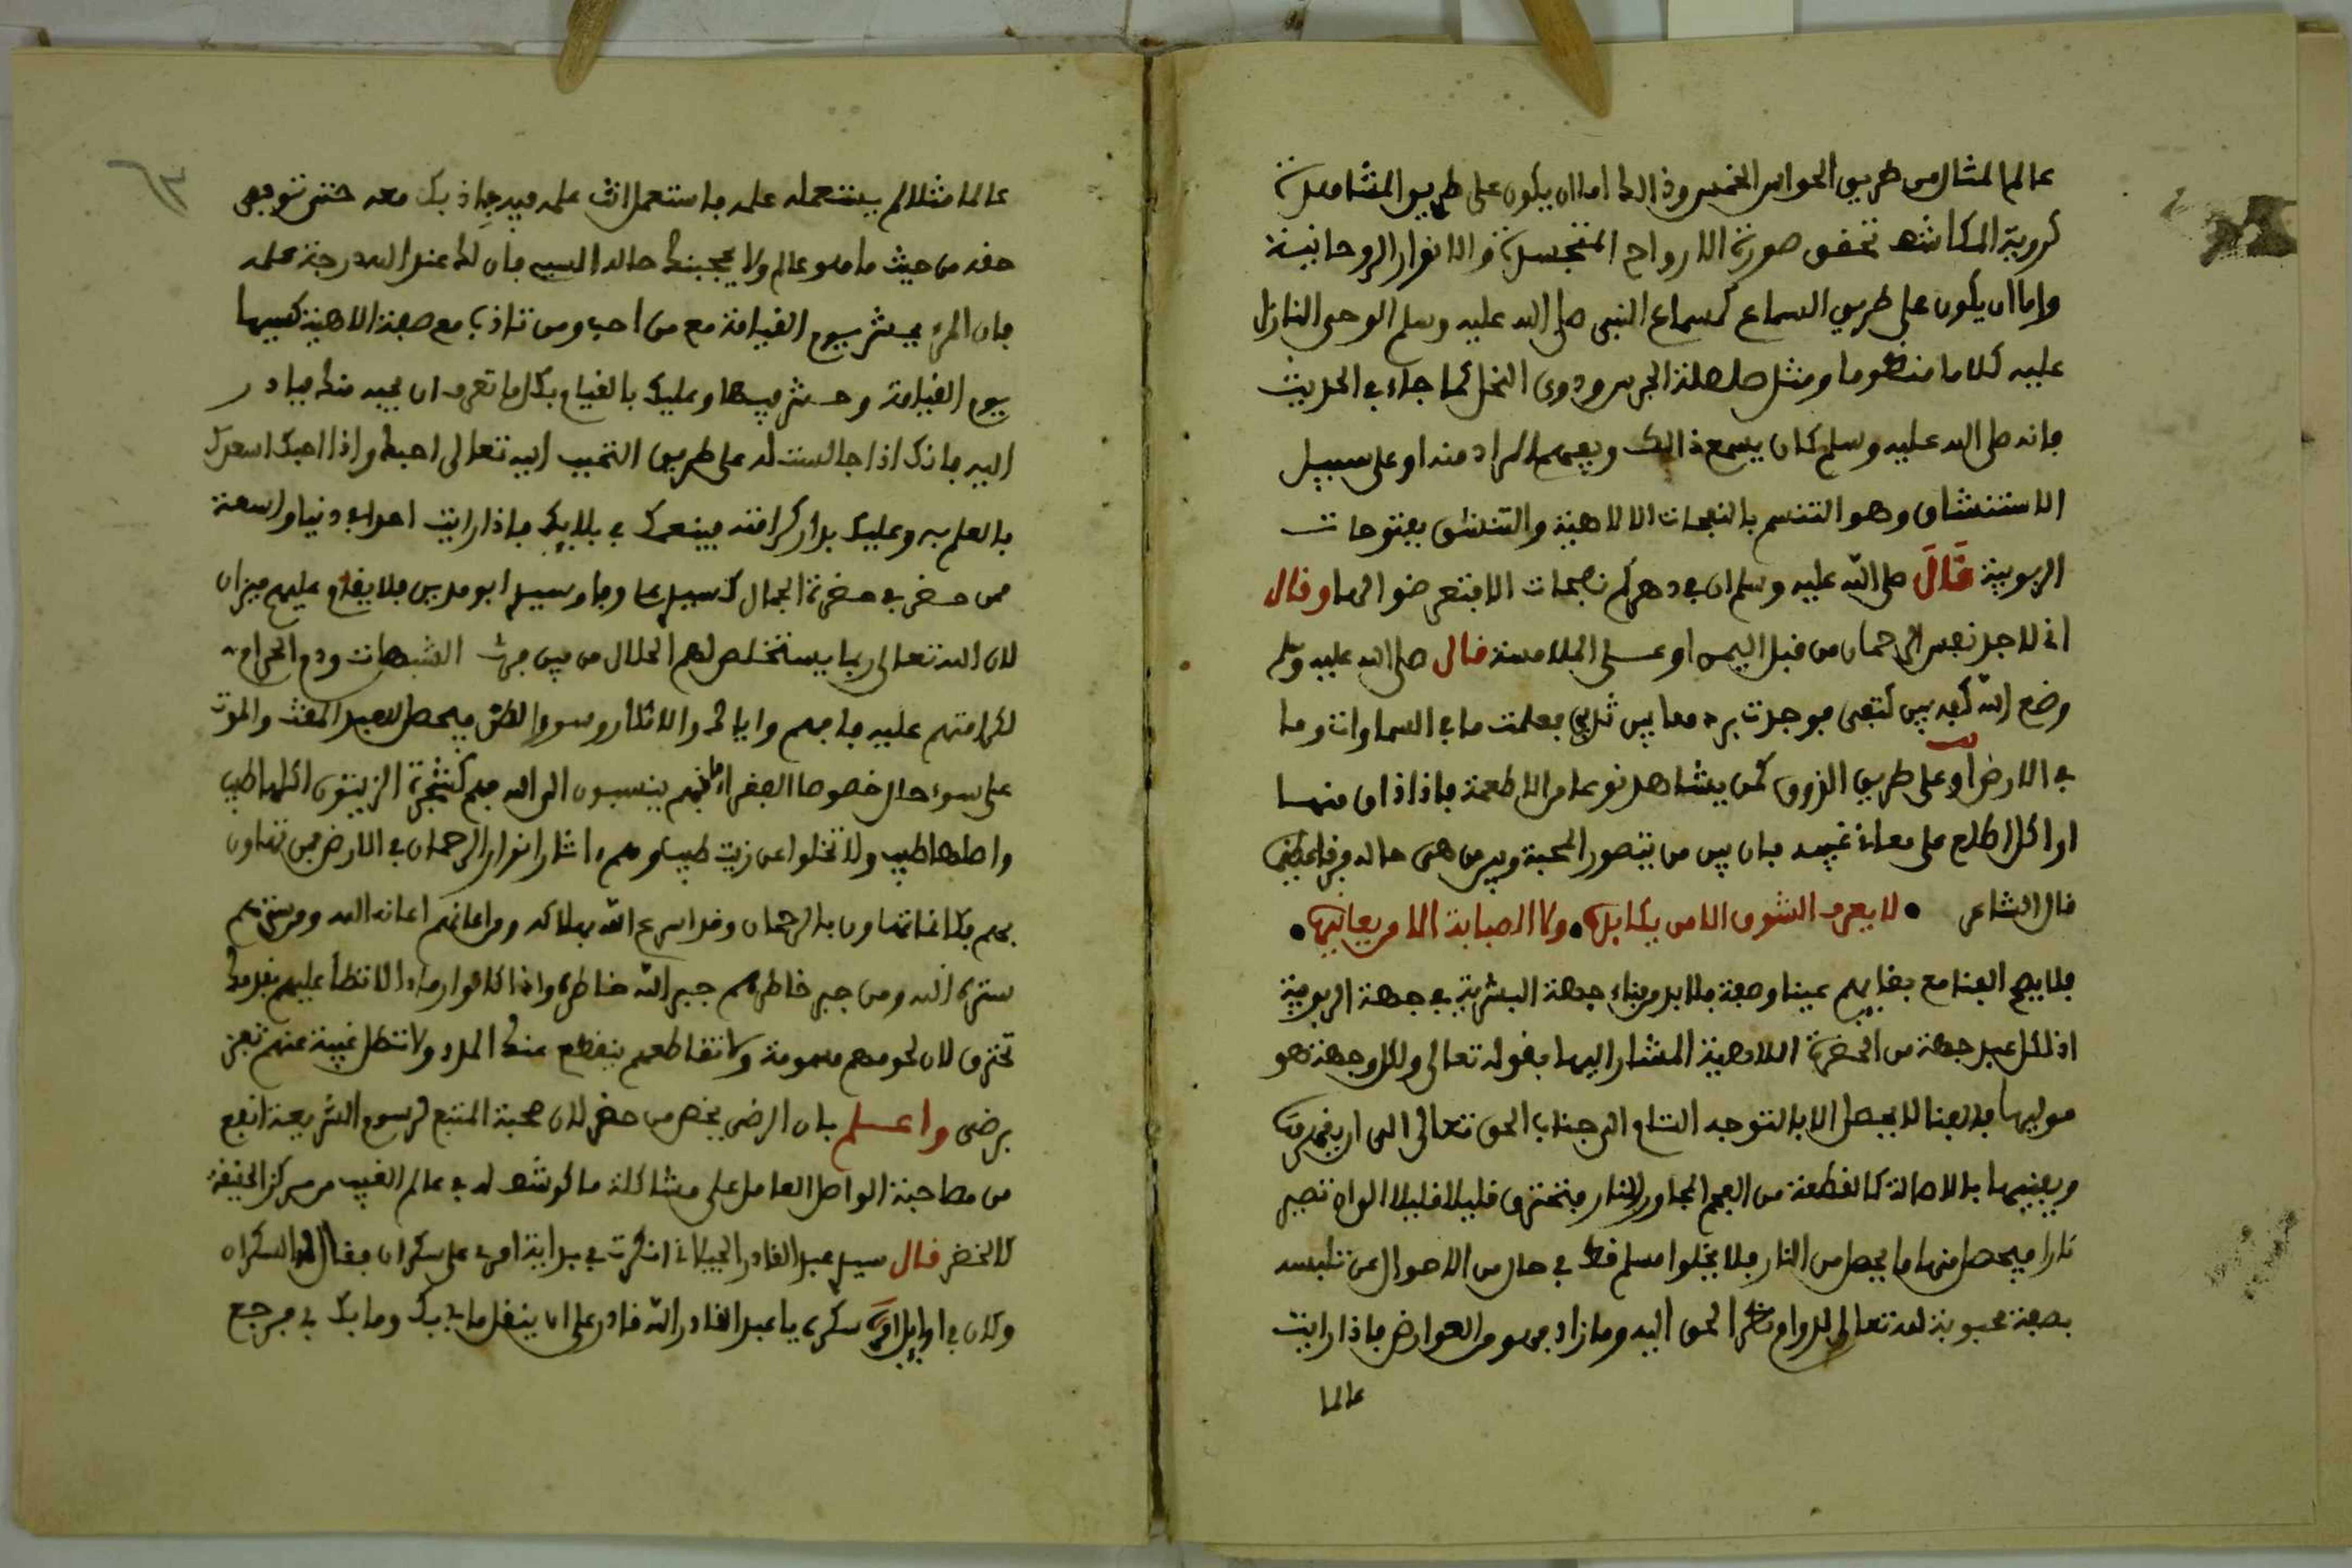 عالم المثال من طريق الحواس الخمس وذالك اما ان يكون على طريق المشاهدة
كروية المكاشف تحقق صورة الارواح المتجسدة والانوار الروحانية
واما ان يكون على طريق السماع كسماع النبي صلى الله عليه وسلم الوحى النازل
عليه كلاما منظوما ومثل صلصلة الجرس ودوى النحل كما جاء في الحديث
فانه صلى الله عليه وسلم كان يسمع ذالك ويفهم المراد منه او على سبيل
الاستنشاق وهو التنسم بالنفحات الالاهية والتنشق بفتوحات
الربوبية قال صلى الله عليه وسلم ان في دهركم نفحات الا فتعرضوا لها وقال
انى لاجد نفس الرحمان من قبل اليمن او على الملامسة قال صلى الله عليه وسلم
وضع الله كفه بين كتفى فوجدت بردها بين ثديي فعلمت ما في السماوات وما
في الارض او على طريق الذوق كمن يشاهد نوعا من الاطعمة فاذا ذاق منها
او اكل اطلع على معانى غيبه فان بين من يتصور المحبة وبين من هى حاله فرقا عظيما
قال الشاعر • لا يعرف الشوق الا من يكابده • ولا الصبابة الا من يعانيها •
فلا يصح الفنا مع بقايهم عينا وصفة فلا بد من فناء جهة البشرية في جهة الربوبية
اذ لكل عبد جهة من الحضرة اللاهية المشار اليها بقوله تعالى ولكل وجهة هو
موليها فالفنا لا يحصل الا بالتوجه التام الى جناب الحق تعالى الى ان
ويفنيها بالاصالة كالقطعة من الفحم المجاور للنار فتحترق قليلا قليلا الى ان تصير
نارا فيحصل منها ما يحصل من النار فلا يخلوا مسلم قط في حال من الاحوال عن تلبسه
بصفة محبوبة لله تعالى لدوام نظر الحق اليه وما زاد فهو من العوارض فاذا رايت
عالما
عالما مثلا لم يستعمله علمه فاستعمل انت علمه فيه معه حتى توفي
حقه من حيث ما هو عالم ولا يحجبنك حاله السيء فان له عند الله درجة علمه
فان المرء يحشر يوم القيامة مع من احب ومن تادب مع صفة الاهية كسيها
يوم القيامة وحشر فيها وعليك بالقيام بكل ما تعرف ان يحبه منك فبادر
اليه فانك اذا جالست له على طريق التحبب اليه تعالى احبك واذا احبك اسعدك
بالعلم به وعليك بدار كرامته فينعمك في بلايك فاذا رايت احدا في دنيا واسعة
ممن حضر في حضرة الجمال كسيدي وفا وسيدي ابو مدين فلا يقام عليهم ميزان
لان الله تعالى ربما يستخلص لهم الحلال من بين فرث الشبهات ودم الحرام
لكرامتهم عليه فافهم واياك والانكار وسوء الظن فيحصل للعبد المقت والموت
على سوء حال خصوصا الفقراء فانهم ينسبون الى الله فهم كشجرة الزيتون اكلها طيب
واصلها طيب ولا تخلوا عن زيت طيب وهم اشار انوار الرحمان في الارض فمن تهاون
بهم فكانما تهاون بالرحمان وقد اسرع الله بهلاكه ومن اعانهم اعانه الله ومن سترهم
ستره الله ومن جبر خاطرهم جبر الله خاطره واذا كانوا رمادا لا تطأ عليهم بقدمك
تحترق لان لحومهم مسمومة ولا تقاطعهم ينقطع عنك المدد ولا تبطل غيبة عنهم تفز
برضى واعلم بان الرضى يخص من حضر لان صحبة المتبع لرسوم الشريعة انفع
من مصاحبة الواصل العامل على مشاكلة ما كوشف له في عالم الغيب من سر كنز الحقيقة
كالخضر قال سيدي عبد القادر الجيلاني انكرت في بداية امري على سكران فقال لي السكران
وكان في اوايل سكره يا عبد القادر الله قادر على ان ينقل ما بي بك وما بك بي فرجع